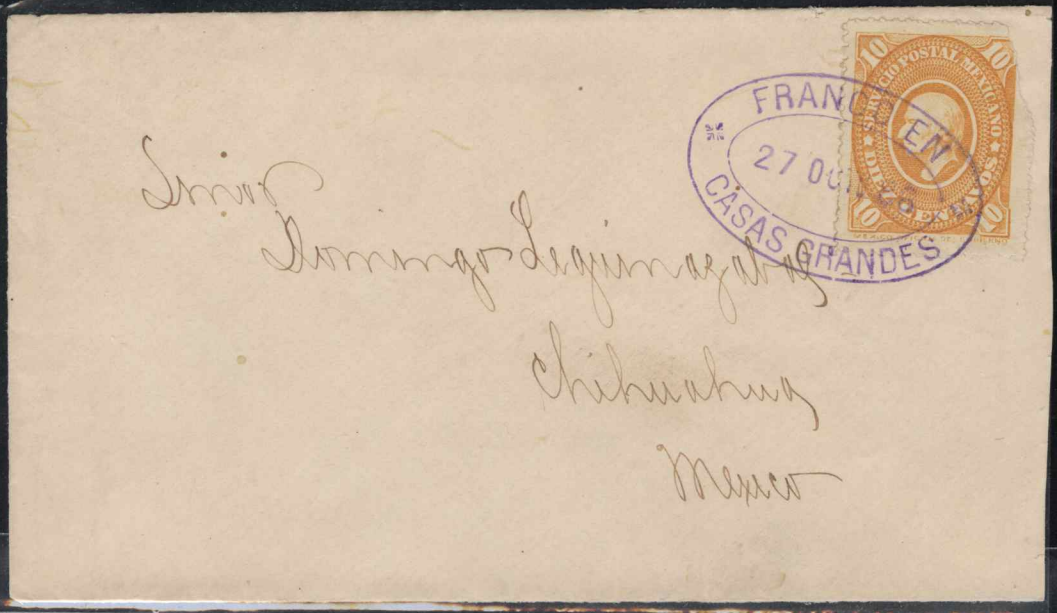 10 10
SERVICIO POSTAL MEXICANO
DIEZ CENTAVOS
10 10
FRANCO EN
27
CASAS GRANDES
Señor
Domingo Leguinazabal
Chihuahua
Mexico